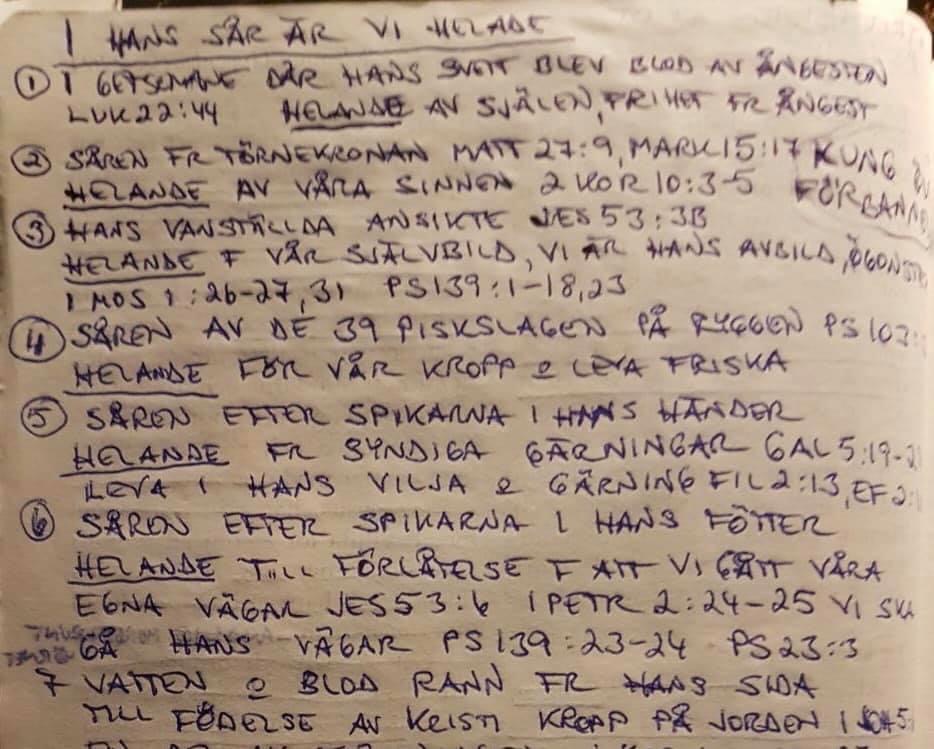 I HANS SÅR ÄR VI HELADE
① I GETSEMANE DÄR HANS SVETT BLEV BLOD AV ÅNGESTEN
LUK 22:44 HELANDE AV SJÄLEN, FRIHET FR ÅNGEST
② SÅREN FR TÖRNEKRONAN MATT 27:9, MARK 15:17 KUNG
HELANDE AV VÅRA SINNEN 2 KOR 10:3-5 FÖRBANN
③ HANS VANSTÄLLDA ANSIKTE JES 53:3B
HELANDE F VÅR SJÄLVBILD, VI ÄR HANS AVBILD, ÖGONST
1 MOS 1:26-27, 31 PS 139:1-18, 23
④ SÅREN AV DE 39 PISKSLAGEN PÅ RYGGEN PS 103:
HELANDE FÖR VÅR KROPP o LEVA FRISKA
⑤ SÅREN EFTER SPIKARNA I HANS HÄNDER
HELANDE FR SYNDIGA GÄRNINGAR GAL 5:19-2
LEVA I HANS VILJA o GÄRNING FIL 2:13, EF 2:
⑥ SÅREN EFTER SPIKARNA I HANS FÖTTER
HELANDE TILL FÖRLÅTELSE F ATT VI GÅTT VÅRA
EGNA VÄGAR JES 53:6 1 PETR 2:24-25 VI SKA
GÅ HANS VÄGAR PS 139:23-24 PS 23:3
7 VATTEN o BLOD RANN FR HANS SIDA
TILL FÖDELSE AV KRISTI KROPP PÅ JORDEN 1 JOH 5: